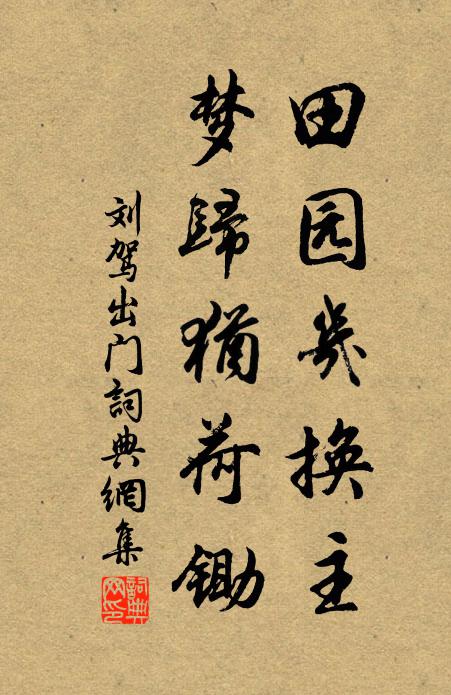 田园几换主
梦歸猶荷锄
刘驾出门詞典網集
詞典网印